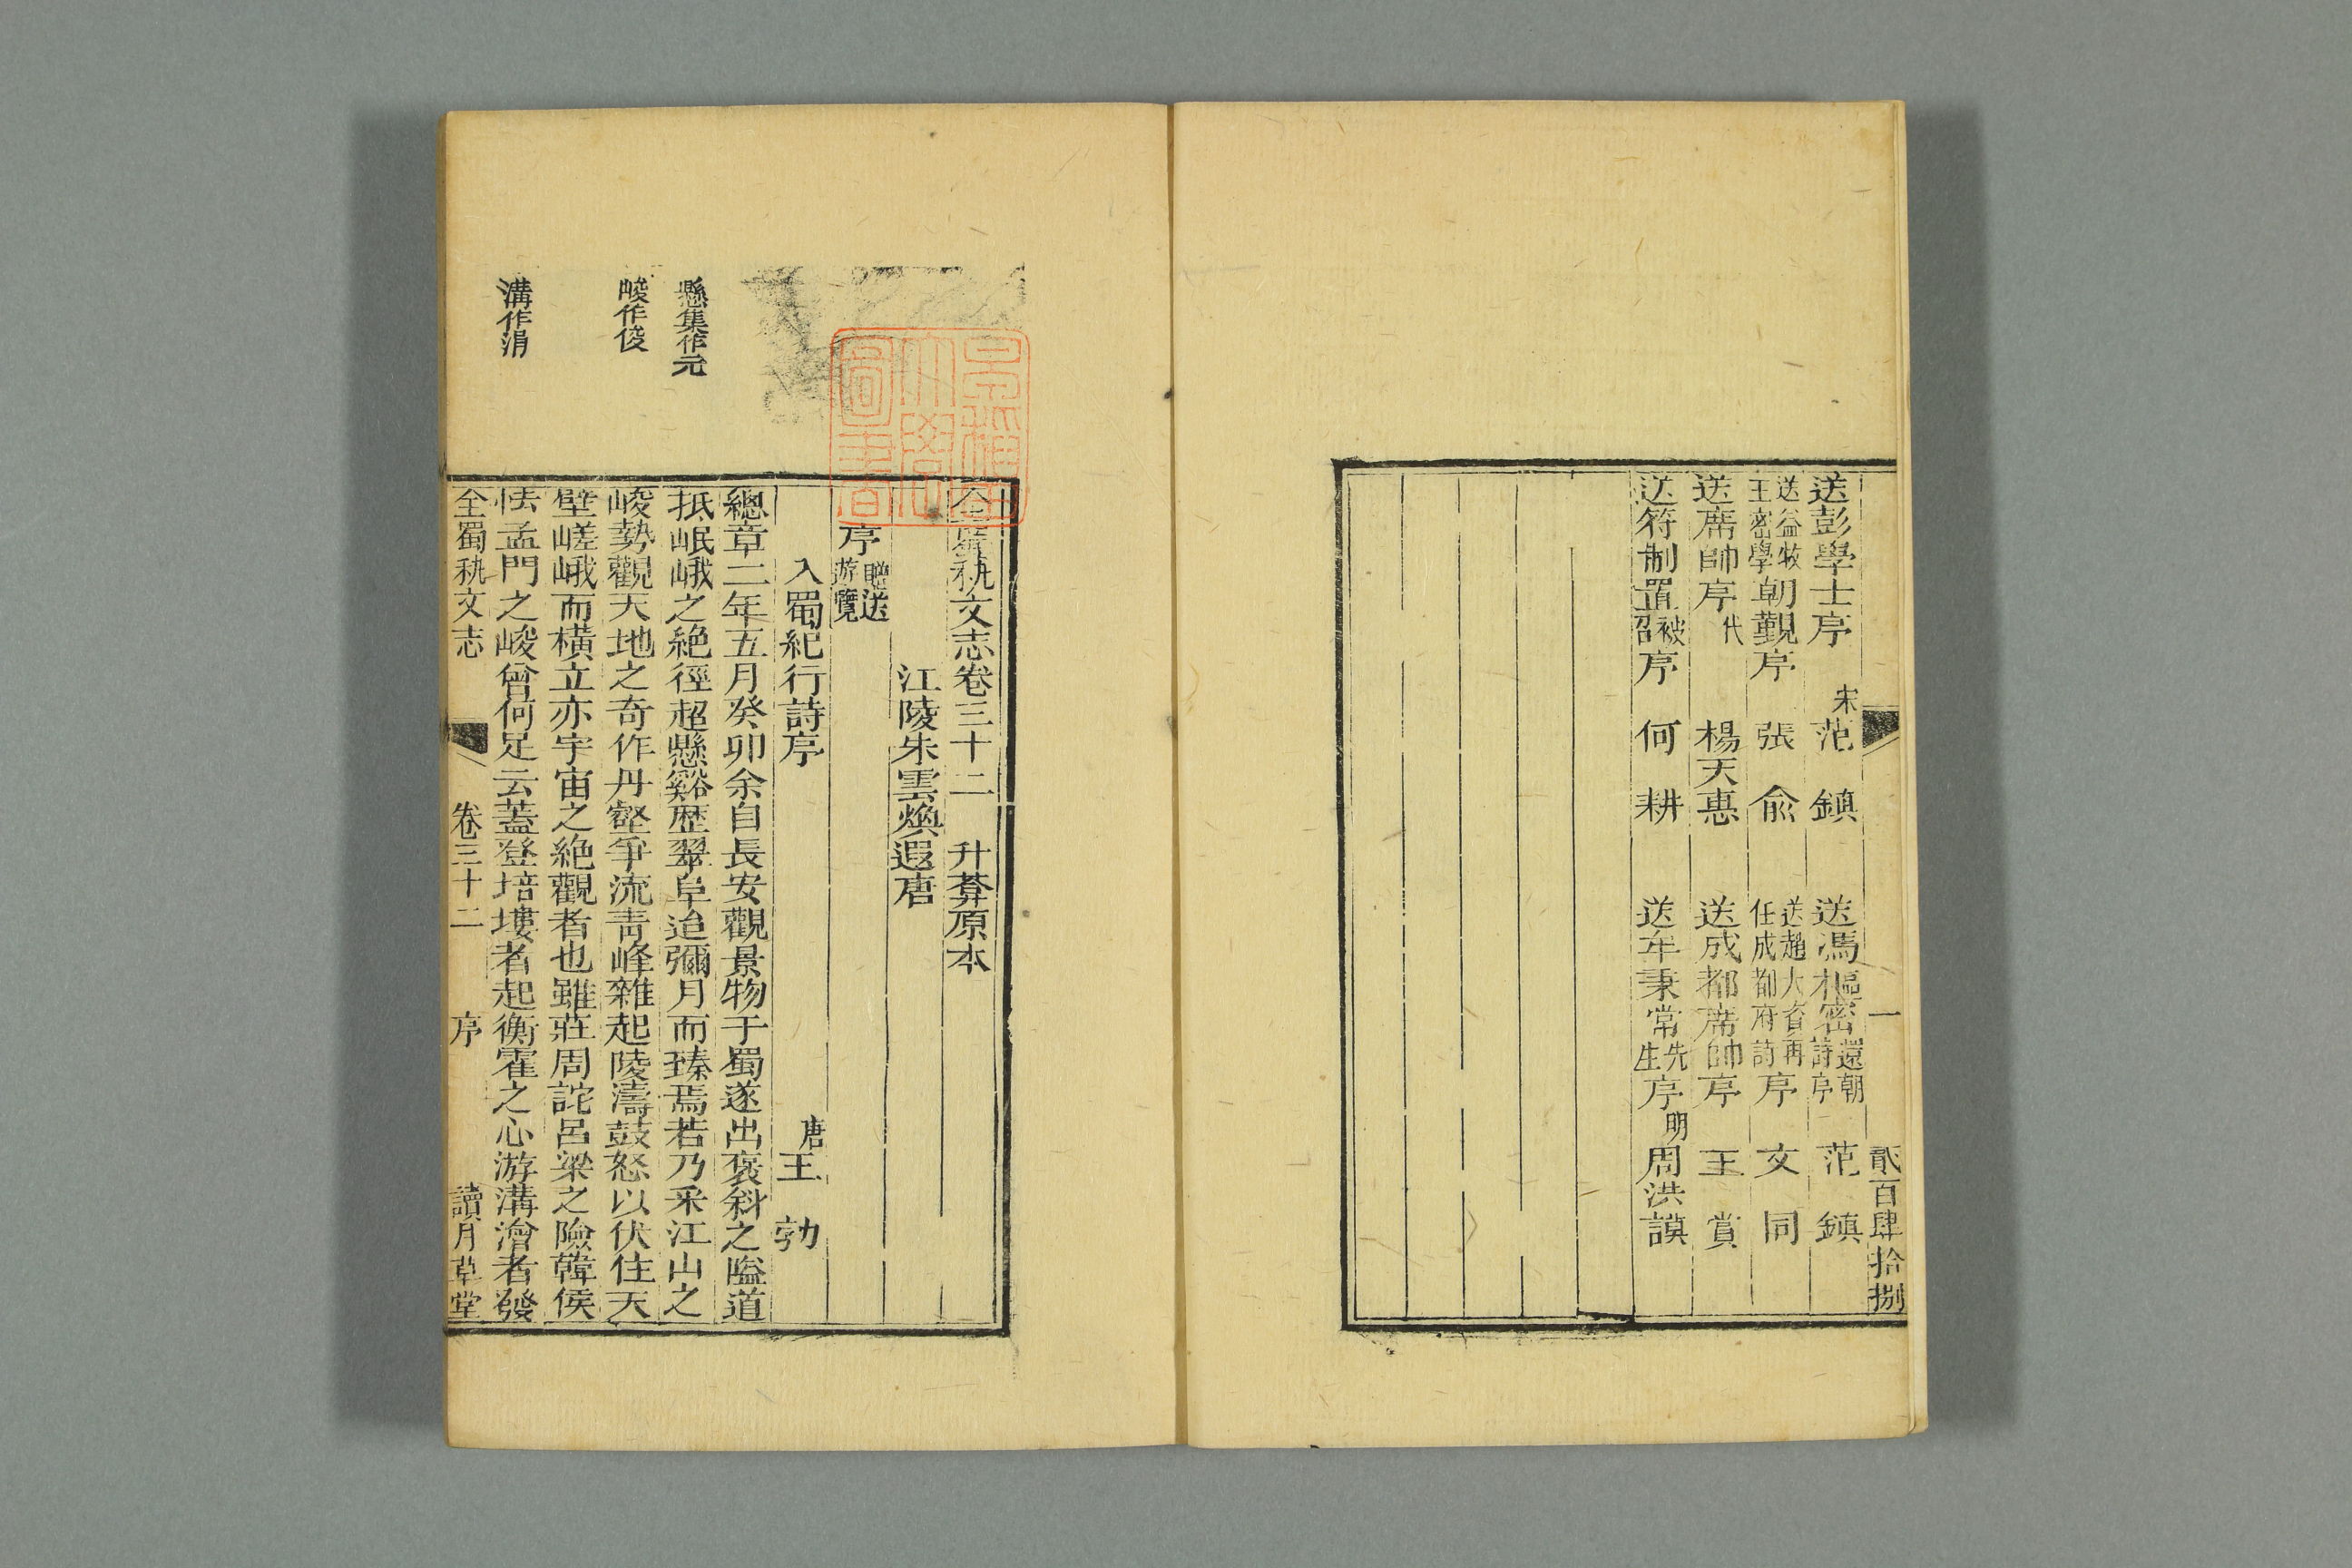 一 貳百肆拾捌
送彭學士序 宋范鎮 送馮樞密還朝詩序 范鎮
送益牧王密學朝覲序 張俞 送趙大資再任成都府詩序 文同
送席帥序代 楊天惠 送成都席帥序 王賞
送符制置被召序 何耕 送牟秉常先生序 明周洪謨
全蜀秇文志卷三十二 升菴原本
江陵朱雲煥遐唐
序 贈送 遊覽
入蜀紀行詩序 唐王勃
總章二年五月癸卯余自長安觀景物于蜀遂出褒斜之隘道
抵岷峨之絶徑超懸谿歷翠阜迨彌月而臻焉若乃采江山之
峻勢觀天地之奇作丹壑爭流青峰雜起陵濤鼓怒以伏住天
壁嵯峨而橫立亦宇宙之絶觀者也雖莊周詫呂梁之險韓侯
怯孟門之峻曾何足云蓋登培塿者起衡霍之心游溝澮者發
全蜀秇文志 卷三十二 序 讀月草堂
懸集作元
峻作俊
溝作涓